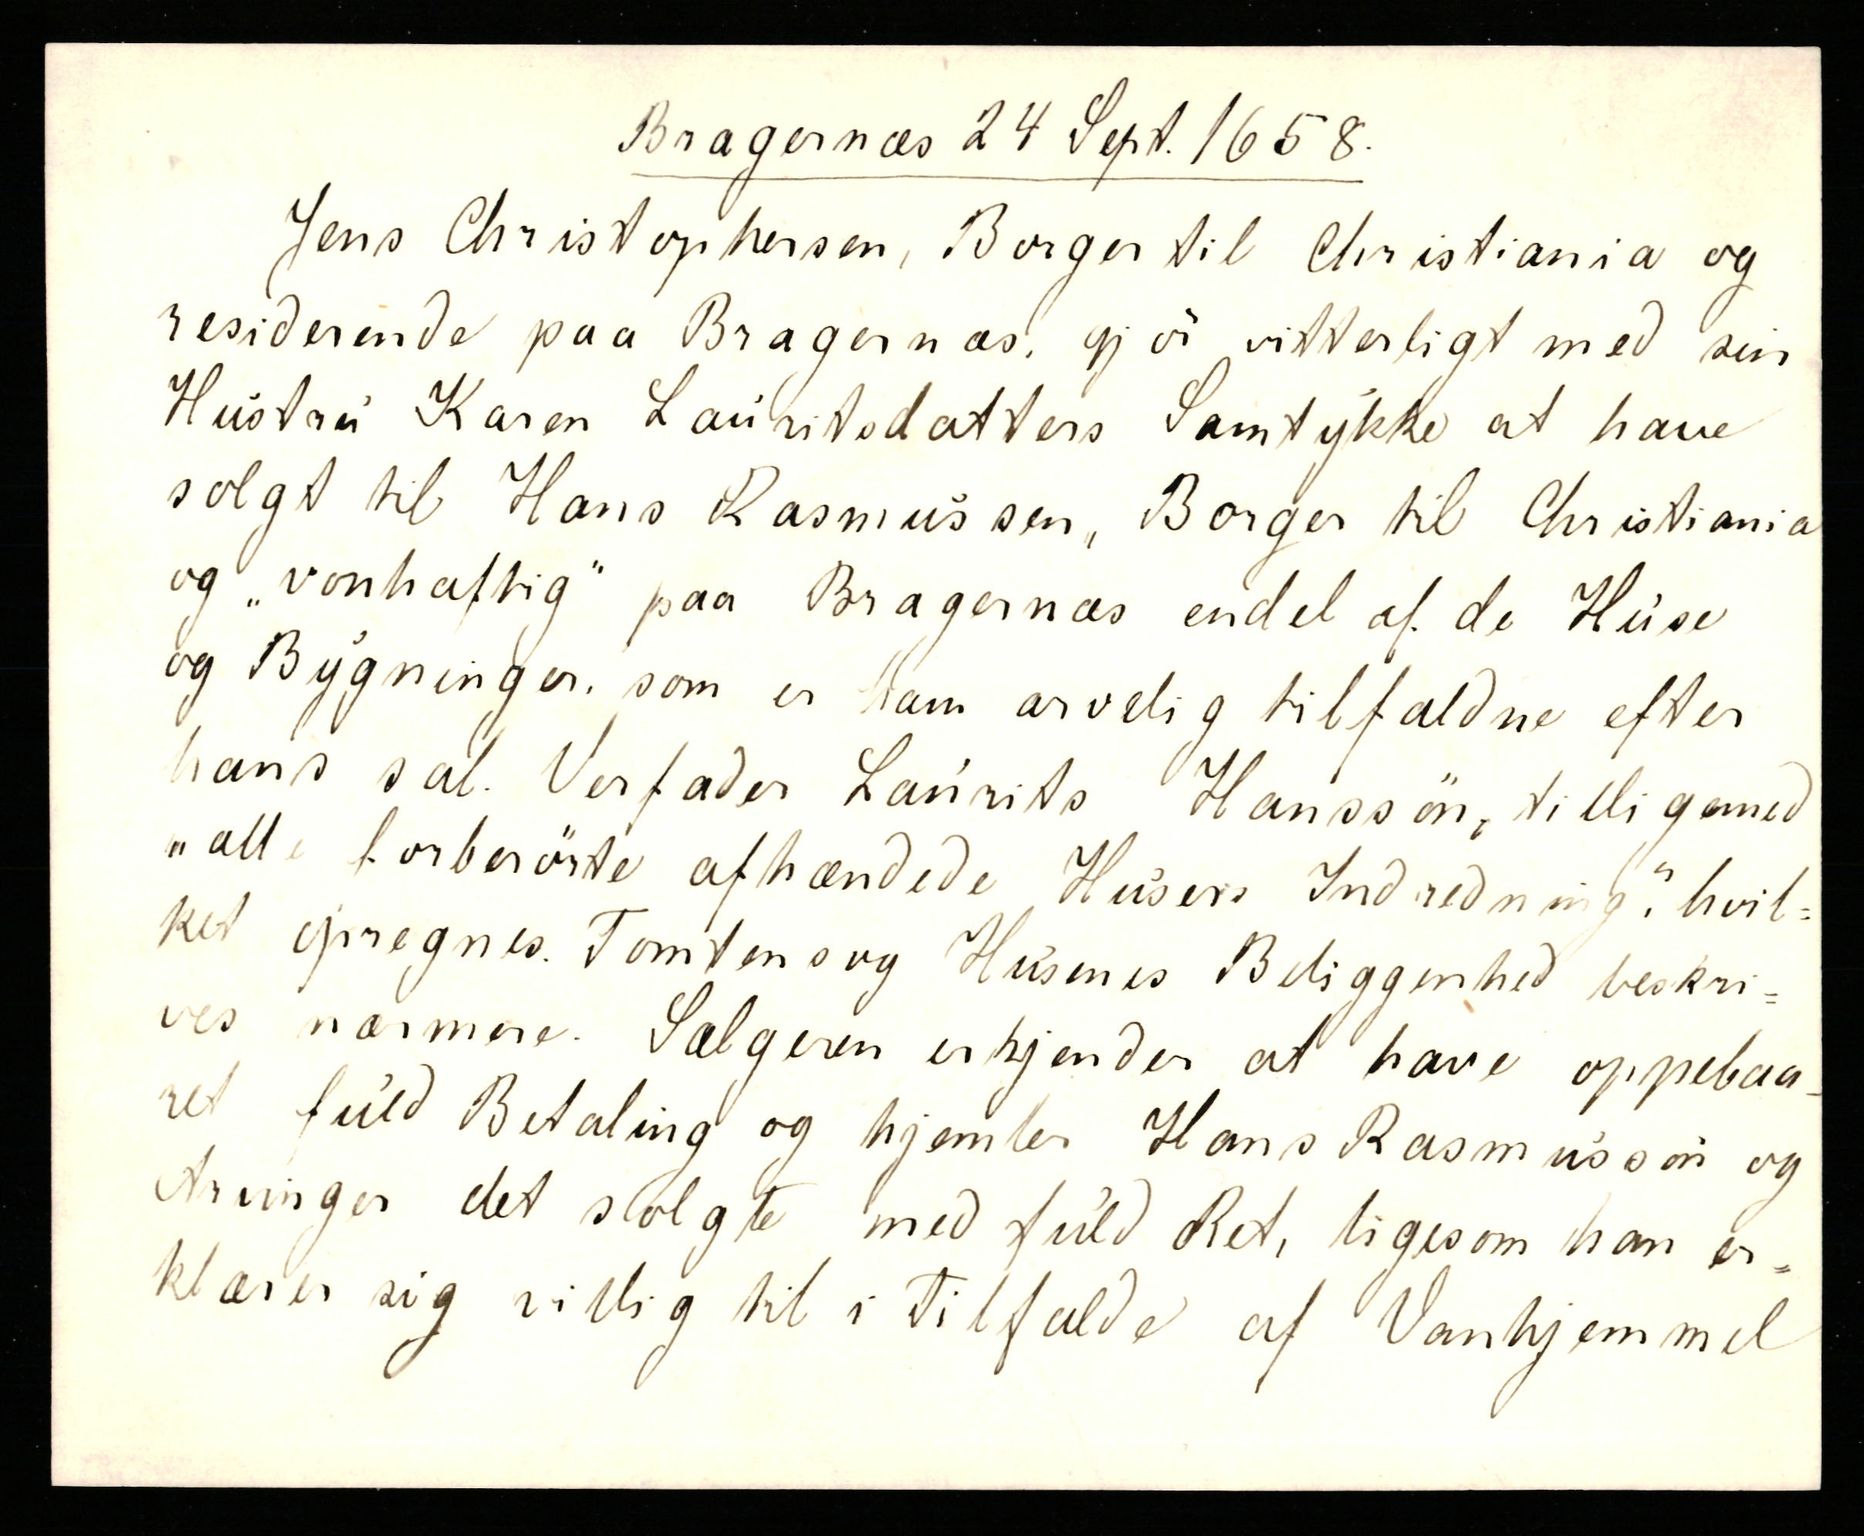 Bragernæs 24 Sept. 1658.
Jens Christophersen, Borger til Christiania og
residerende paa Bragernæs, gjör vitterligt med sin
Hustru Karen Lauritsdatters Samtykke at have
solgt til Hans Rasmussen, Borger til Christiania
og „vonhaftig“ paa Bragernæs endel af de Huse
og Bygninger, som er ham arvelig tilfaldne efter
hans sal. Verfader Laurits Hanssön, tilligemed
„alle forberörte afhændede Husers Indredning“, hvil=
ket opregnes. Tomtens og Husenes Beliggenhed beskri=
ves nærmere. Sælgeren erkjender at have oppebaa-
ret fuld Betaling og hjemler Hans Rasmussön og
Arvinger det solgte med fuld Ret, ligesom han er=
klærer sig villig til i Tilfælde af Vanhjemmel